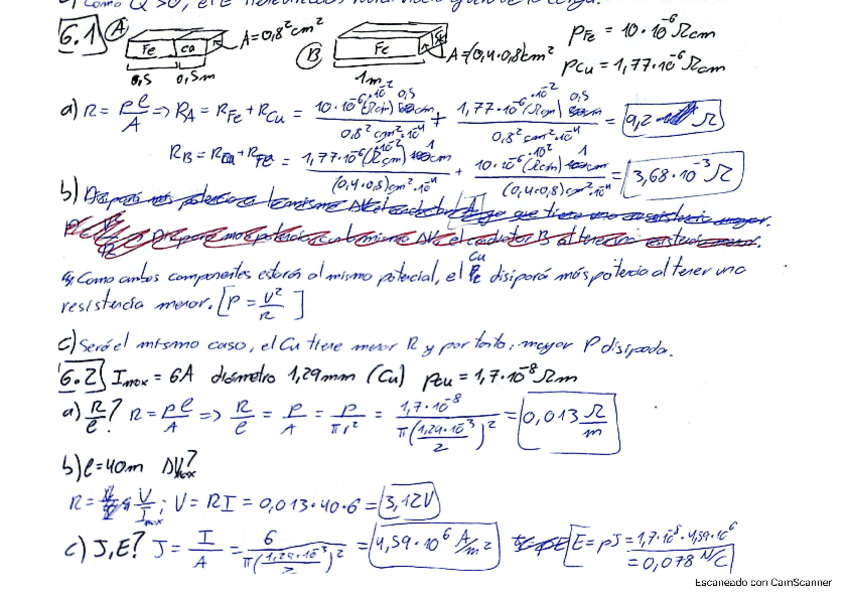 6.1 A Fe Cu A=0,8² cm² 0,5 0,5m B Fe A=(0,4·0,8)cm² 1m ρFe = 10·10⁻⁶ Ωcm
ρCu = 1,77·10⁻⁶ Ωcm
a) R = ρl/A => R_A = R_Fe + R_Cu = 10·10⁻⁶·10⁻² (Ωcm) 0,5 / 0,8² cm²·10⁻⁴ + 1,77·10⁻⁶·10⁻² (Ωcm) 0,5 / 0,8² cm²·10⁻⁴ = 9,2 Ω
R_B = R + R = 1,77·10⁻⁶·10⁻² (Ωcm) 1 / (0,4·0,8)cm²·10⁻⁴ + 10·10⁻⁶·10⁻² (Ωcm) 1 / (0,4·0,8)cm²·10⁻⁴ = 3,68·10⁻³ Ω
b)
Como ambos componentes estarán al mismo potencial, el Cu disipará más potencia al tener una
resistencia menor. [P = V²/R]
c) Será el mismo caso, el Cu tiene menor R y por tanto, mayor P disipada.
6.2 Imax = 6A diámetro 1,29mm (Cu) ρcu = 1,7·10⁻⁸ Ωm
a) R/l? R = ρl/A => R/l = ρ/A = ρ/πr² = 1,7·10⁻⁸ / π(1,29·10⁻³/2)² = 0,013 Ω/m
b) l=40m ΔVmax?
R = V/Imax ; V = RI = 0,013·40·6 = 3,12V
c) J, E? J = I/A = 6 / π(1,29·10⁻³/2)² = 4,59·10⁶ A/m² E = ρJ = 1,7·10⁻⁸·4,59·10⁶
= 0,078 N/C
Escaneado con CamScanner